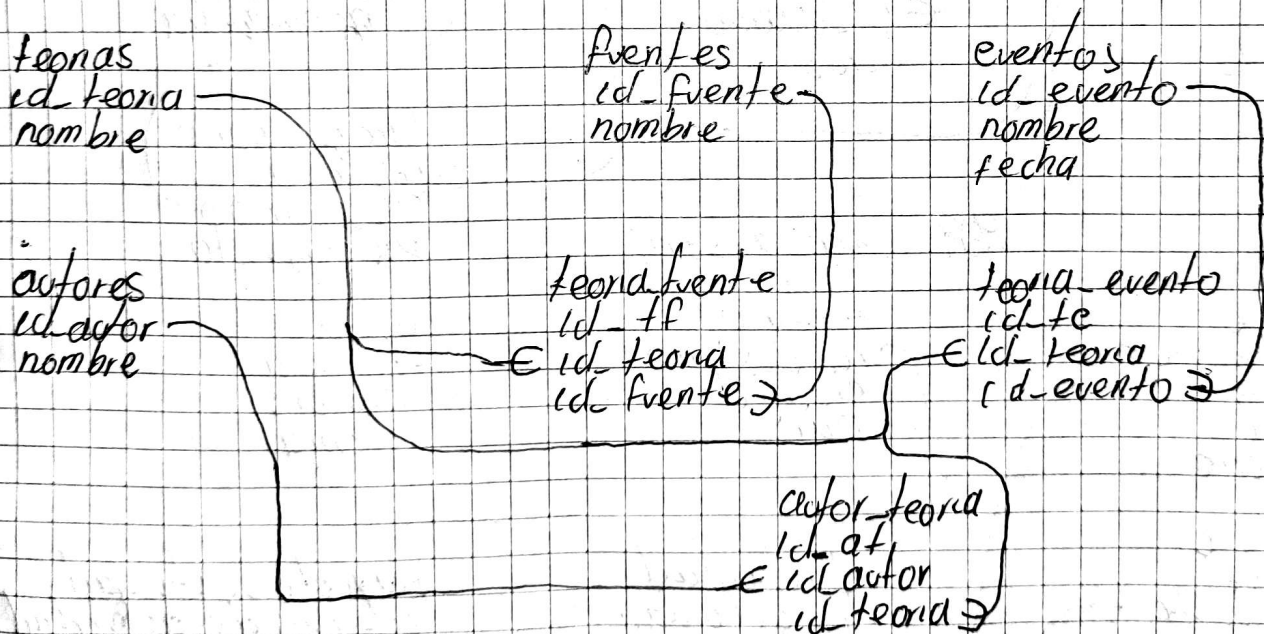 teorias
id_teoria
nombre
fuentes
id_fuente
nombre
eventos
id_evento
nombre
fecha
autores
id_autor
nombre
teoria_fuente
id_tf
id_teoria
id_fuente
teoria_evento
id_te
id_teoria
id_evento
autor_teoria
id_at
id_autor
id_teoria